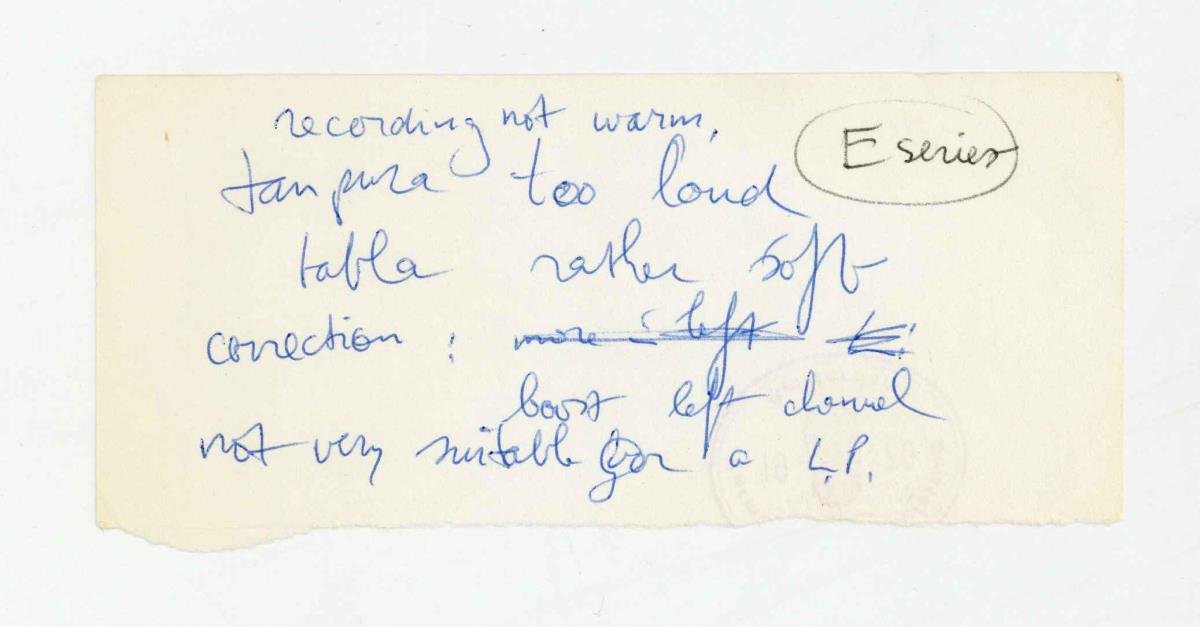 recording not warm.
E series
tanpura too loud
tabla rather soft
correction : more left
boost left channel
not very suitable for a L.P.